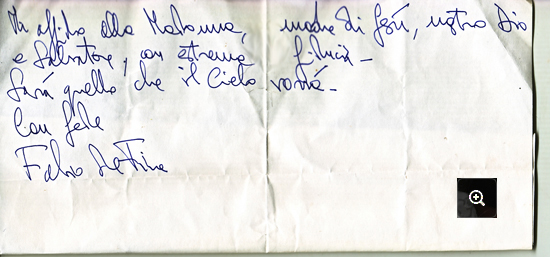 Mi affido alla Madonna, madre di Gesù, nostro Dio
e Salvatore, con estrema fiducia –
Sarà quello che il Cielo vorrà –
Con fede
Fabio De Fina